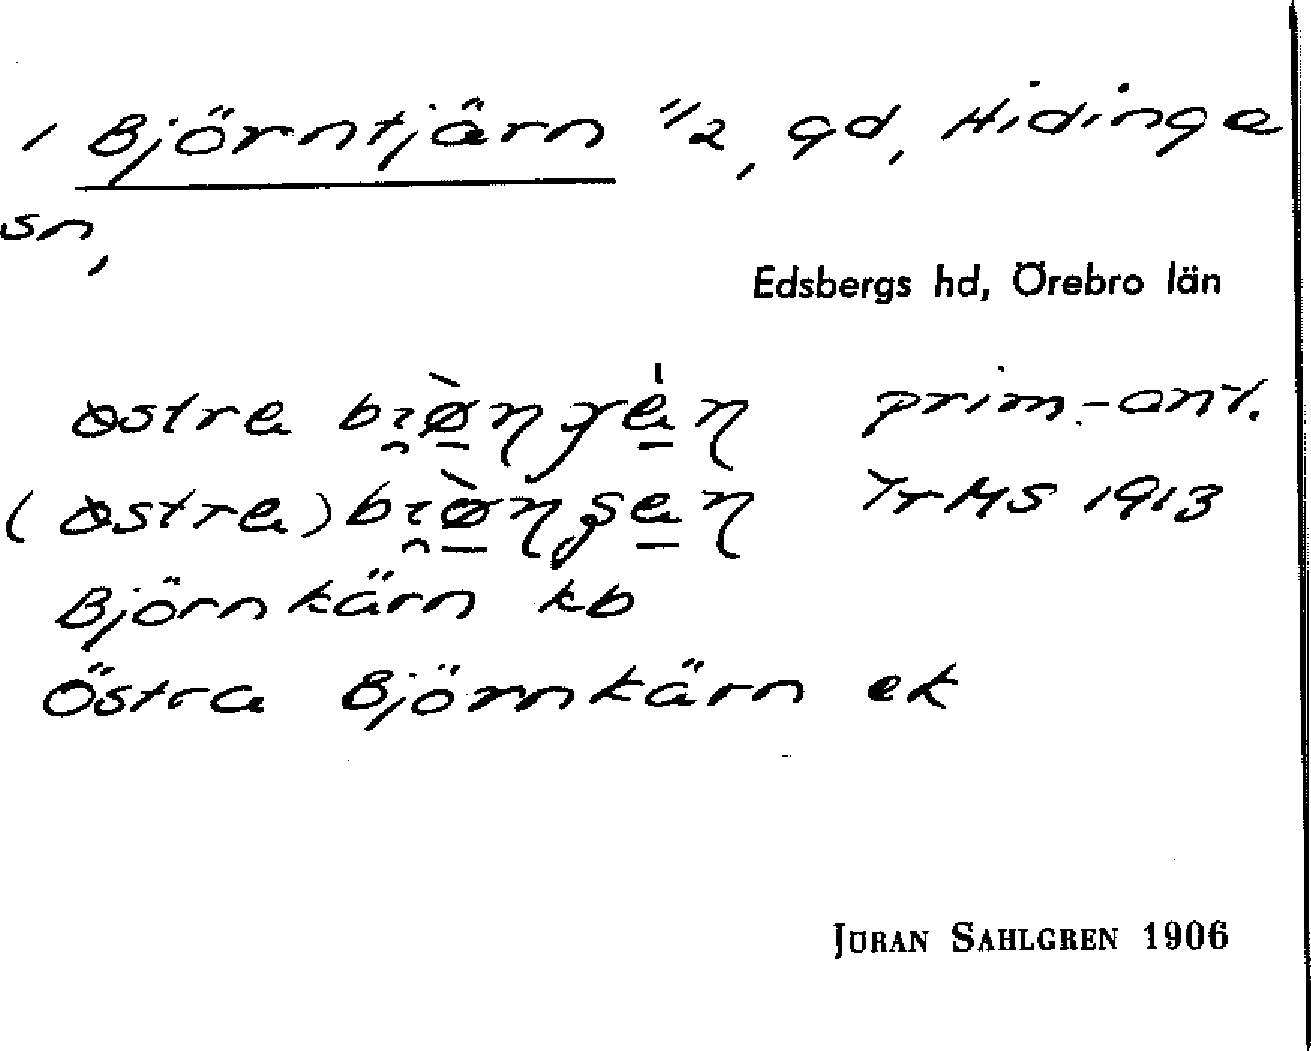 1 Björntjärn 1/2, gd, Hidinge
sn,
Edsbergs hd, Örebro län
östra prim.-ant.
(östra) YrMS 1913
Björnkärn kb
Östra Björnkärn ek
JÖRAN SAHLGREN 1906